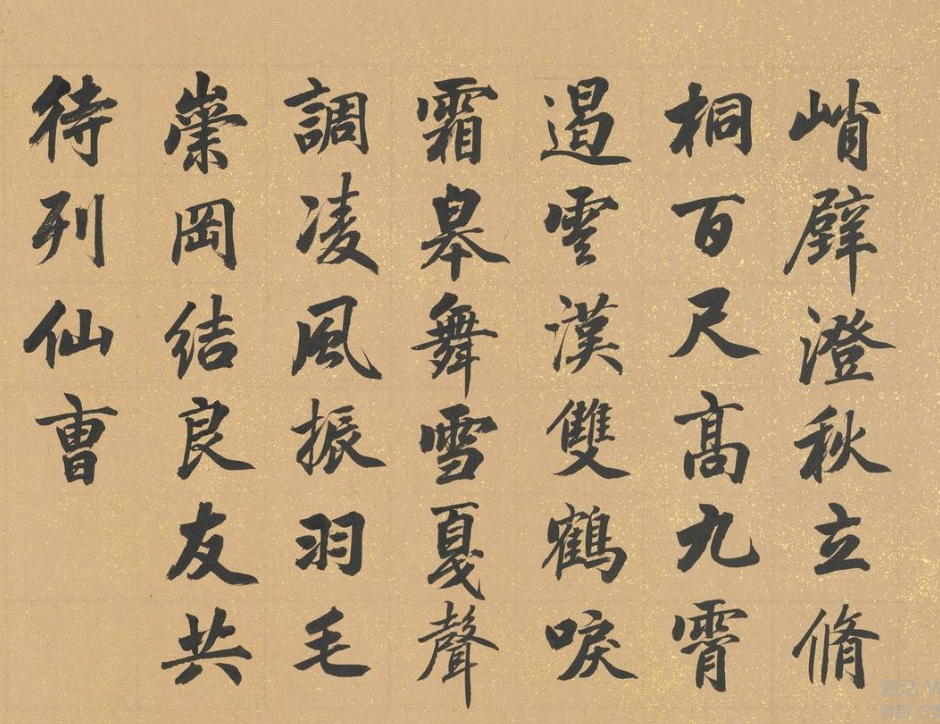 峭壁澄秋立脩
桐百尺高九霄
遏雲漢雙鶴唳
霜皋舞雪戛聲
調凌風振羽毛
崇岡結良友共
待列仙曹